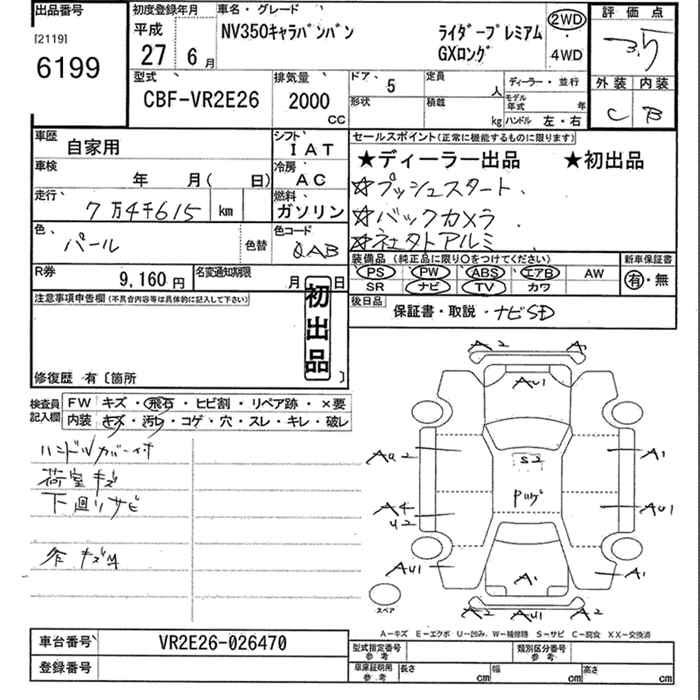 出品番号
[2119]
6199
初度登録年月
平成
27年6月
車名・グレード
NV350キャラバンバン
ライダープレミアム
GXロング
2WD
・
4WD
評価点
3.5
外装 内装
C B
型式
CBF-VR2E26
排気量
2000
CC
ドア
5
定員
人
形状
積載
kg
ディーラー・並行
モデル年式 年
ハンドル 左・右
車歴
自家用
シフト
IAT
車検
年 月( 日)
冷房
AC
走行
7万4千615 km
燃料
ガソリン
色
パール
色替
色コード
QAB
R券
9,160円
名変通知期限
月 日
セールスポイント(正常に機能するものに限ります)
★ディーラー出品 ★初出品
☆プッシュスタート.
☆バックカメラ
☆社外アルミ
装備品 (純正品に限り○をつけてください)
新車保証書
PS PW ABS エアB AW
SR ナビ TV カワ
有・無
後日品
保証書・取説・ナビSD
注意事項申告欄(不具合内容等は具体的に記入して下さい)
初出品
修復歴 有〔箇所 〕
検査員記入欄
FW キズ・飛石・ヒビ割・リペア跡・×要
内装 キズ・汚レ・コゲ・穴・スレ・キレ・破レ
ハンドルカバー付
荷室キズ
下廻リサビ
A2 A2
AU1
AU2 A1
S2
A4
U2
AU1
AU1 A1
A1
A2 AU1 A2
スペア
A-キズ E-エクボ U-凹み W-補修跡 S-サビ C-腐食 XX-交換済
車台番号
VR2E26-026470
登録番号
型式指定番号
参考
類別区分番号
参考
車庫証明用
参考
長さ cm 幅 cm 高さ cm